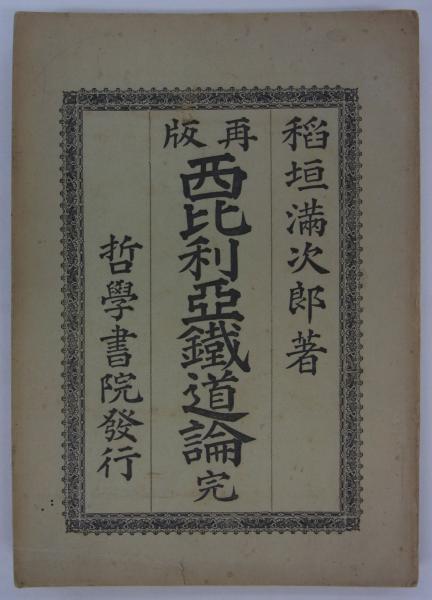 稻垣滿次郎著
再版
西比利亞鐵道論完
哲學書院發行